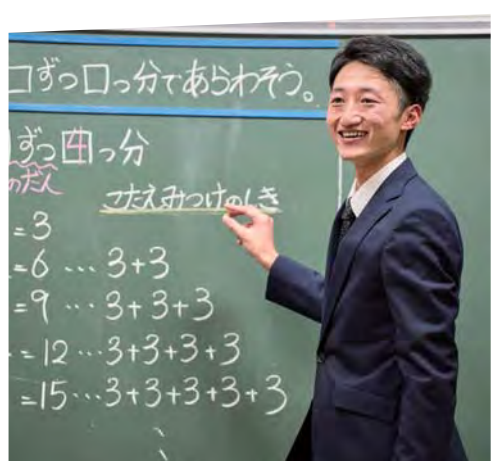 □ずつ□っ分であらわそう。
□ずつ4っ分
のだん
こたえみつけのしき
=3
=6 … 3+3
=9 … 3+3+3
=12…3+3+3+3
=15…3+3+3+3+3